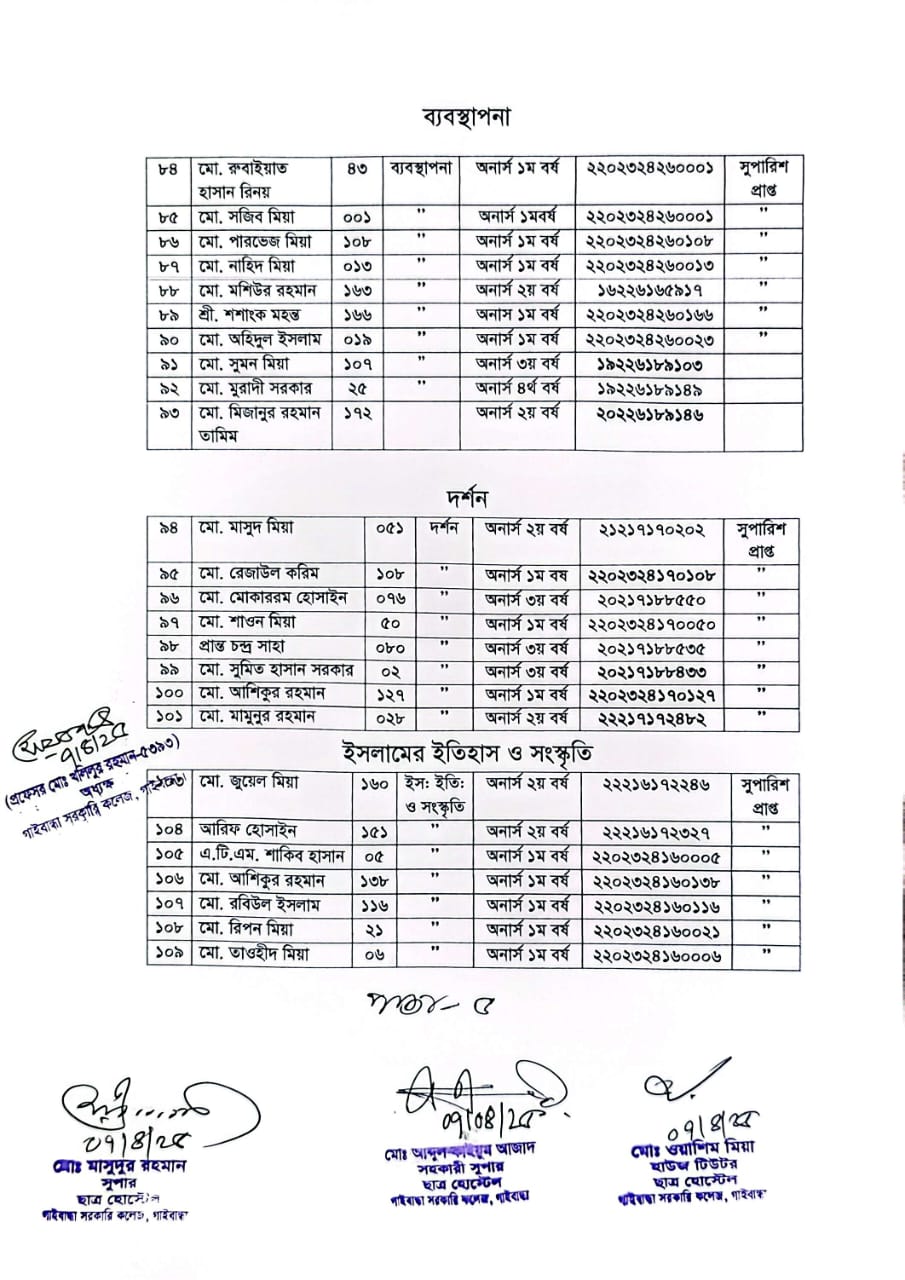 ব্যবস্থাপনা
৮৪ মো. রুবাইয়াত হাসান রিনয় ৪৩ ব্যবস্থাপনা অনার্স ১ম বর্ষ ২২০২৩২৪২৬০০০১ সুপারিশ প্রাপ্ত
৮৫ মো. সজিব মিয়া ০০১ " অনার্স ১মবর্ষ ২২০২৩২৪২৬০০০১ "
৮৬ মো. পারভেজ মিয়া ১০৮ " অনার্স ১ম বর্ষ ২২০২৩২৪২৬০১০৮ "
৮৭ মো. নাহিদ মিয়া ০১৩ " অনার্স ১ম বর্ষ ২২০২৩২৪২৬০০১৩ "
৮৮ মো. মশিউর রহমান ১৬৩ " অনার্স ২য় বর্ষ ১৬২২৬১৬৫৯১৭ "
৮৯ শ্রী. শশাংক মহন্ত ১৬৬ " অনাস ১ম বর্ষ ২২০২৩২৪২৬০১৬৬ "
৯০ মো. অহিদুল ইসলাম ০১৯ " অনার্স ১ম বর্ষ ২২০২৩২৪২৬০০২৩ "
৯১ মো. সুমন মিয়া ১০৭ " অনার্স ৩য় বর্ষ ১৯২২৬১৮৯১০৩
৯২ মো. মুরাদী সরকার ২৫ " অনার্স ৪র্থ বর্ষ ১৯২২৬১৮৯১৪৯
৯৩ মো. মিজানুর রহমান তামিম ১৭২ অনার্স ২য় বর্ষ ২০২২৬১৮৯১৪৬
দর্শন
৯৪ মো. মাসুদ মিয়া ০৫১ দর্শন অনার্স ২য় বর্ষ ২১২১৭১৭০২০২ সুপারিশ প্রাপ্ত
৯৫ মো. রেজাউল করিম ১০৮ " অনার্স ১ম বষ ২২০২৩২৪১৭০১০৮ "
৯৬ মো. মোকাররম হোসাইন ০৭৬ " অনার্স ৩য় বর্ষ ২০২১৭১৮৮৫৫০ "
৯৭ মো. শাওন মিয়া ৫০ " অনার্স ১ম বর্ষ ২২০২৩২৪১৭০০৫০ "
৯৮ প্রান্ত চন্দ্র সাহা ০৮০ " অনার্স ৩য় বর্ষ ২০২১৭১৮৮৫৩৫ "
৯৯ মো. সুমিত হাসান সরকার ০২ " অনার্স ৩য় বর্ষ ২০২১৭১৮৮৪৩৩ "
১০০ মো. আশিকুর রহমান ১২৭ " অনার্স ১ম বর্ষ ২২০২৩২৪১৭০১২৭ "
১০১ মো. মামুনুর রহমান ০২৮ " অনার্স ২য় বর্ষ ২২২১৭১৭২৪৮২ "
৭/৪/২৫
(প্রফেসর মোঃ খলিলুর রহমান-৫৩৯৩)
অধ্যক্ষ
গাইবান্ধা সরকারি কলেজ, গাইবান্ধা
ইসলামের ইতিহাস ও সংস্কৃতি
মো. জুয়েল মিয়া ১৬০ ইস: ইতি: ও সংস্কৃতি অনার্স ২য় বর্ষ ২২২১৬১৭২২৪৬ সুপারিশ প্রাপ্ত
১০৪ আরিফ হোসাইন ১৫১ " অনার্স ২য় বর্ষ ২২২১৬১৭২৩২৭ "
১০৫ এ.টি.এম. শাকিব হাসান ০৫ " অনার্স ১ম বর্ষ ২২০২৩২৪১৬০০০৫ "
১০৬ মো. আশিকুর রহমান ১৩৮ " অনার্স ১ম বর্ষ ২২০২৩২৪১৬০১৩৮ "
১০৭ মো. রবিউল ইসলাম ১১৬ " অনার্স ১ম বর্ষ ২২০২৩২৪১৬০১১৬ "
১০৮ মো. রিপন মিয়া ২১ " অনার্স ১ম বর্ষ ২২০২৩২৪১৬০০২১ "
১০৯ মো. তাওহীদ মিয়া ০৬ " অনার্স ১ম বর্ষ ২২০২৩২৪১৬০০০৬ "
পাতা- ৫
০৭/৪/২৫ ০৭/০৪/২৫ ০৭/৪/২৫
মোঃ মাসুদুর রহমান
সুপার
ছাত্র হোস্টেল
গাইবান্ধা সরকারি কলেজ, গাইবান্ধা
মোঃ আব্দুল কাইয়ুম আজাদ
সহকারী সুপার
ছাত্র হোস্টেল
গাইবান্ধা সরকারি কলেজ, গাইবান্ধা
মোঃ ওয়াশিম মিয়া
হাউজ টিউটর
ছাত্র হোস্টেল
গাইবান্ধা সরকারি কলেজ, গাইবান্ধা